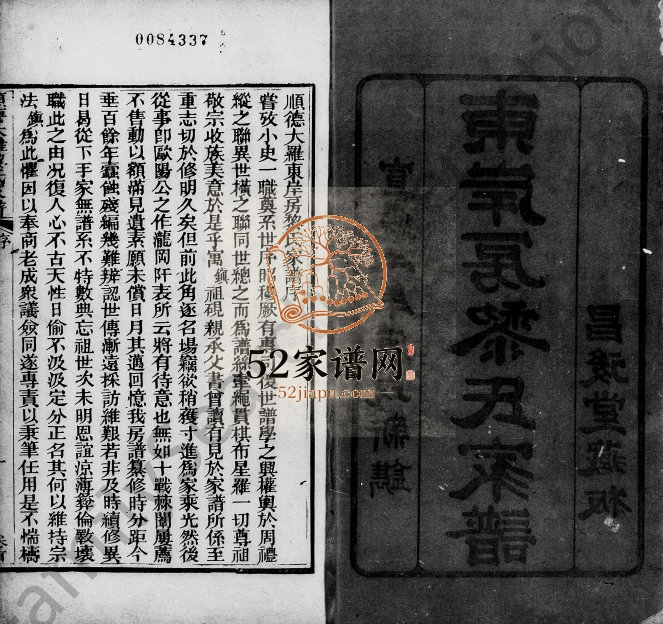 0084337
順德大羅東岸房黎氏家譜序
嘗攷小史一職奠系世序昭穆厥有專後世譜學之興權輿於周禮
縱之聯異世橫之聯同世總之而為譜繩貫棋布星羅一切尊祖
敬宗收族美意於是乎寓鎮祖硯親承父書曾讀有見於家譜所係至
重志切於修明久矣但前此角逐名場竊欲稍獲寸進為家乘光然後
從事即歐陽公之作瀧岡阡表所云將有待意也無如十戰棘闈屢薦
不售動以額滿見遺素願未償日月其邁回憶我房譜纂修時分距今
垂百餘年蠹蝕殘編幾難辨認世傳漸遠採訪維艱若非及時續修異
日易從下手家無譜系不特數典忘祖世次未明恩誼涼薄彝倫斁壞
職此之由況復人心不古天性日偷不汲汲定分正名其何以維持宗
法鎮為此懼因以奉商老成衆議僉同遂專責以秉筆任用是不惴檮
序
一
東岸房黎氏家譜
昌後堂藏板
新鐫
52家谱网
52jiapu.com